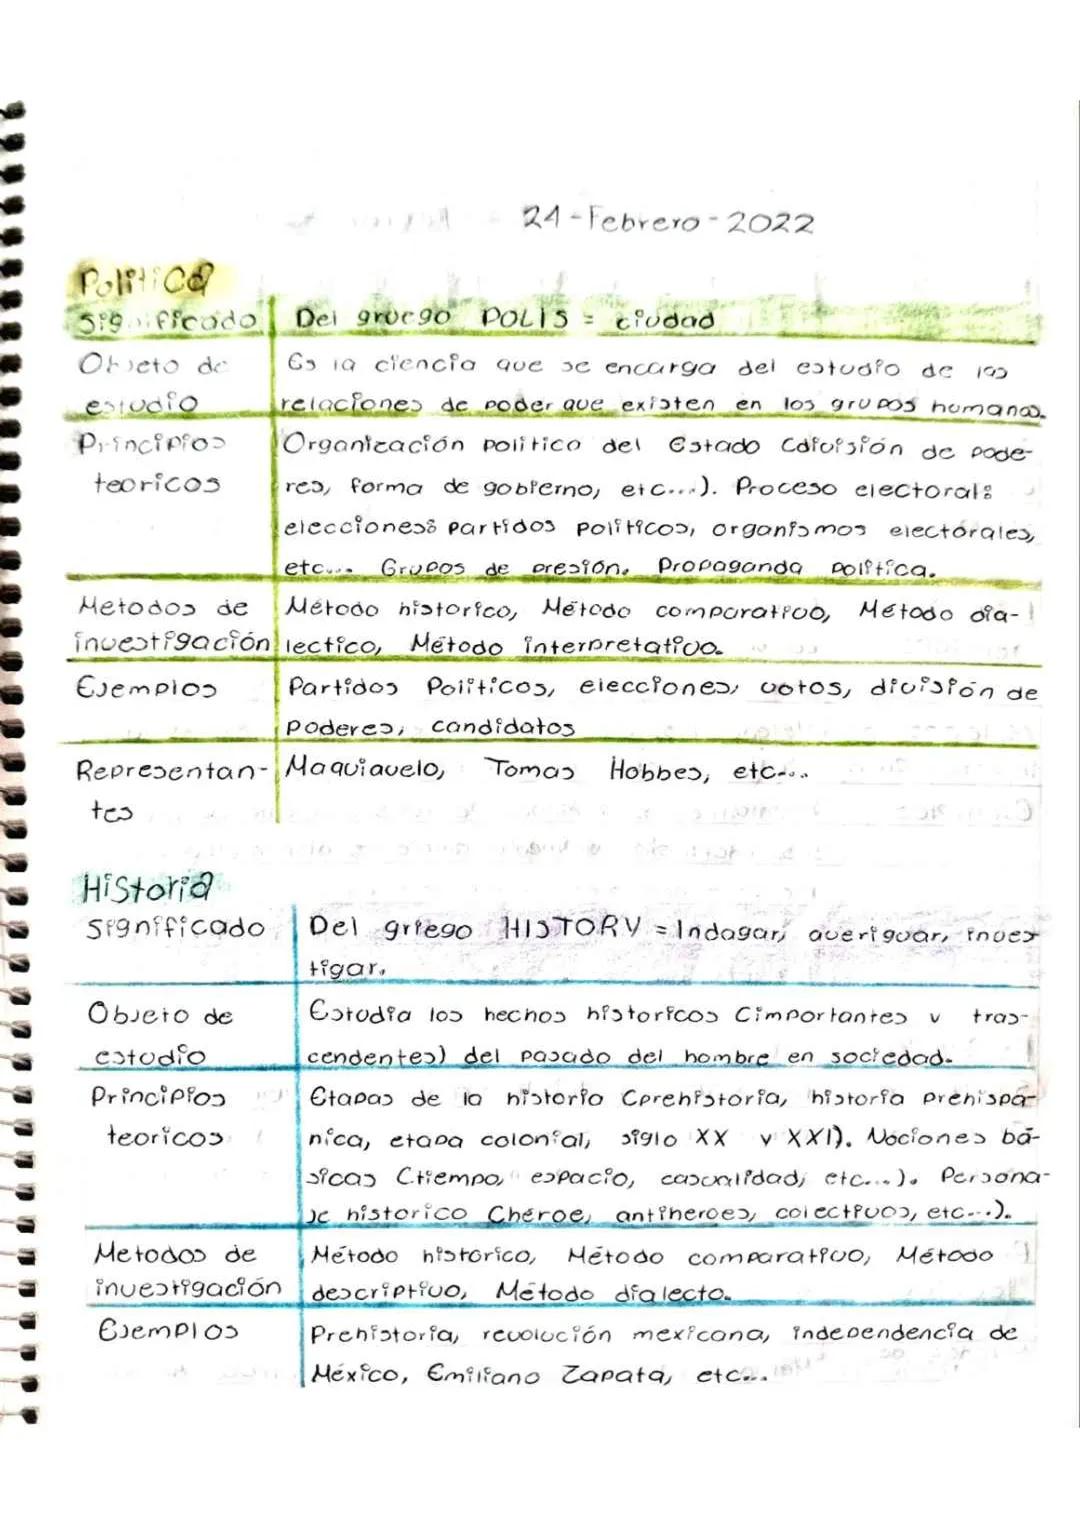 24-Febrero-2022
Política
Significado Del griego POLIS = ciudad
Objeto de Es la ciencia que se encarga del estudio de las
estudio relaciones de poder que existen en los grupos humanos.
Principios Organización politico del Estado (división de pode-
teoricos res, forma de gobierno, etc...). Proceso electoral:
elecciones: partidos politicos, organismos electorales,
etc... Grupos de presión. Propaganda política.
Metodos de Método historico, Método comparativo, Método dia-
investigación lectico, Método interpretativo.
Ejemplos Partidos Politicos, elecciones, votos, división de
poderes, candidatos
Representan- Maquiavelo, Tomas Hobbes, etc...
tes
Historia
Significado Del griego HISTORY = Indagar, averiguar, inves
tigar.
Objeto de Estudia los hechos historicos (importantes y tras-
estudio cendentes) del pasado del hombre en sociedad.
Principios Etapas de la historia (prehistoria, historia prehispá-
teoricos nica, etapa colonial, siglo XX y XXI). Nociones bá-
sicas (tiempo, espacio, casualidad, etc...). Persona-
je historico (heroe, antiheroes, colectivos, etc...).
Metodos de Método historico, Método comparativo, Método
investigación descriptivo, Método dialecto.
Ejemplos Prehistoria, revolución mexicana, independencia de
México, Emiliano Zapata, etc...